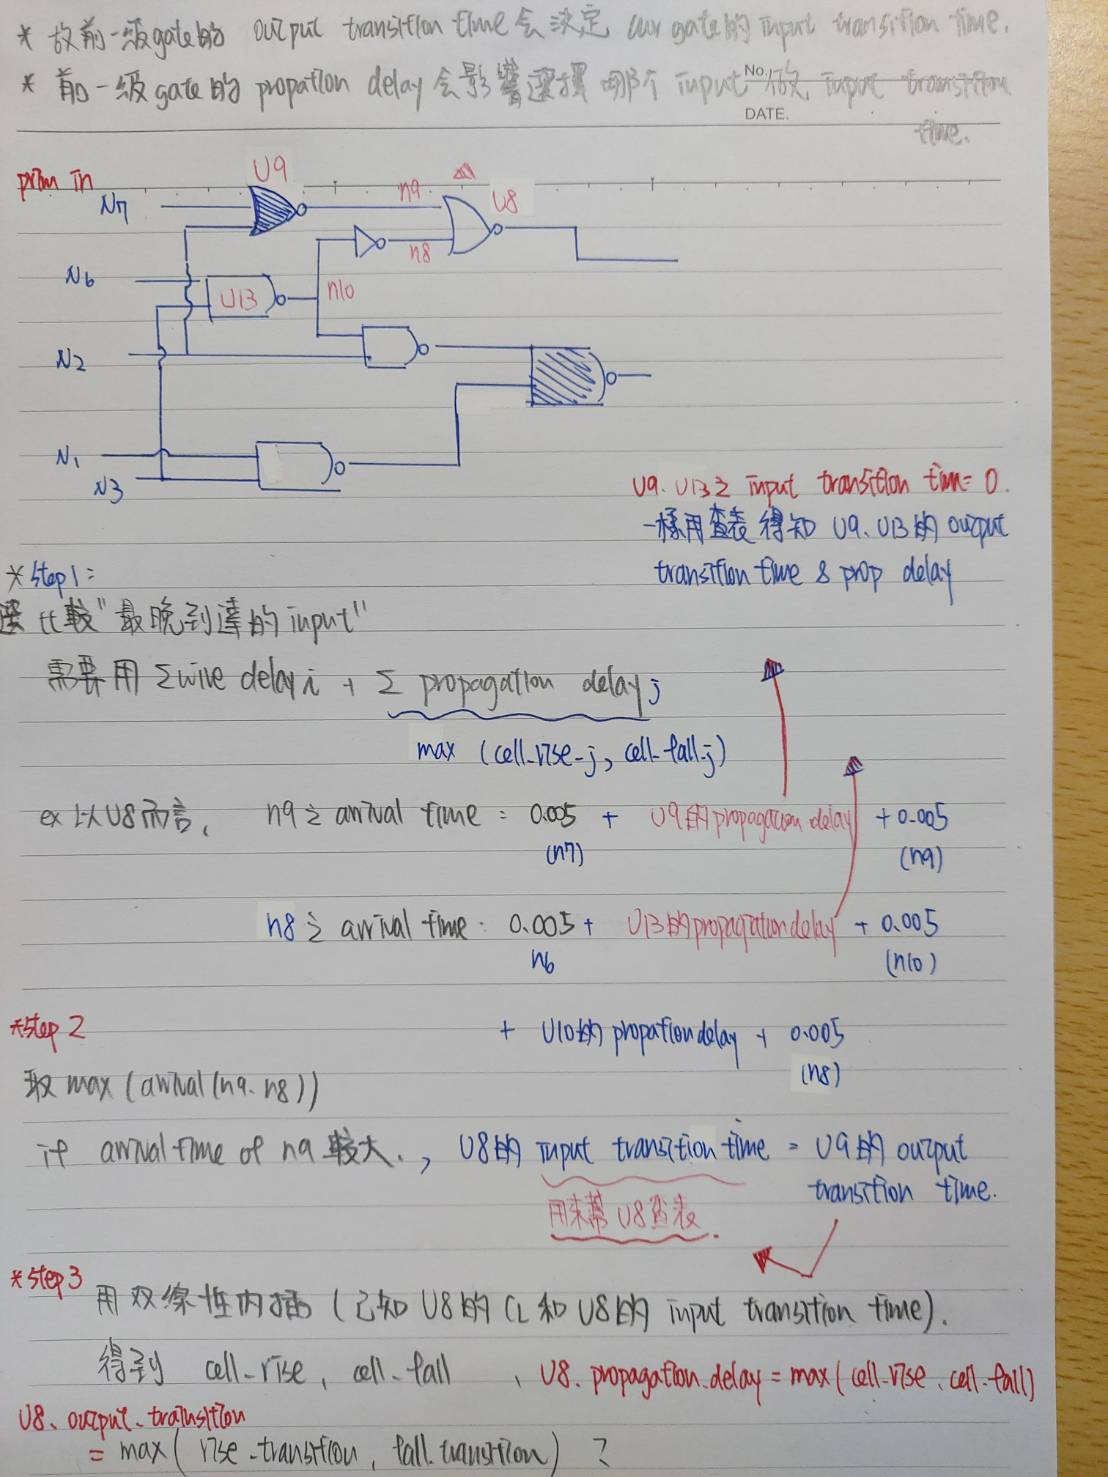 * 故前一級gate的 output transition time 会決定 cur gate的 input transition time.
* 前一級gate的 propation delay 会影響選擇哪个 input 做 input transition
No.
DATE.
time.
prim in
U9
N7
n9
U8
n8
N6
U13
n10
N2
N1
N3
U9. U13之 input transition time = 0.
一樣用查表得知 U9、U13的 output
transition time & prop delay
*step1:
比較"最晚到達的input"
需要用 Σwire delay i + Σ propagation delay j
max (cell-rise-j, cell-fall-j)
ex 以U8而言, n9之 arrival time: 0.005 + U9的propagation delay + 0.005
(n7) (n9)
n8之 arrival time: 0.005 + U13的propagation delay + 0.005
n6 (n10)
*step 2
+ U10的propation delay + 0.005
(n8)
取 max (arrival (n9. n8))
if arrival time of n9 較大., U8的 input transition time = U9的 output
transition time.
用來幫 U8查表.
*step3
用双線性内插 (已知 U8的 CL 和 U8的 input transition time).
得到 cell-rise, cell-fall , U8. propagation.delay = max (cell-rise, cell-fall)
U8. output-transition
= max (rise-transition, fall.transition) ?